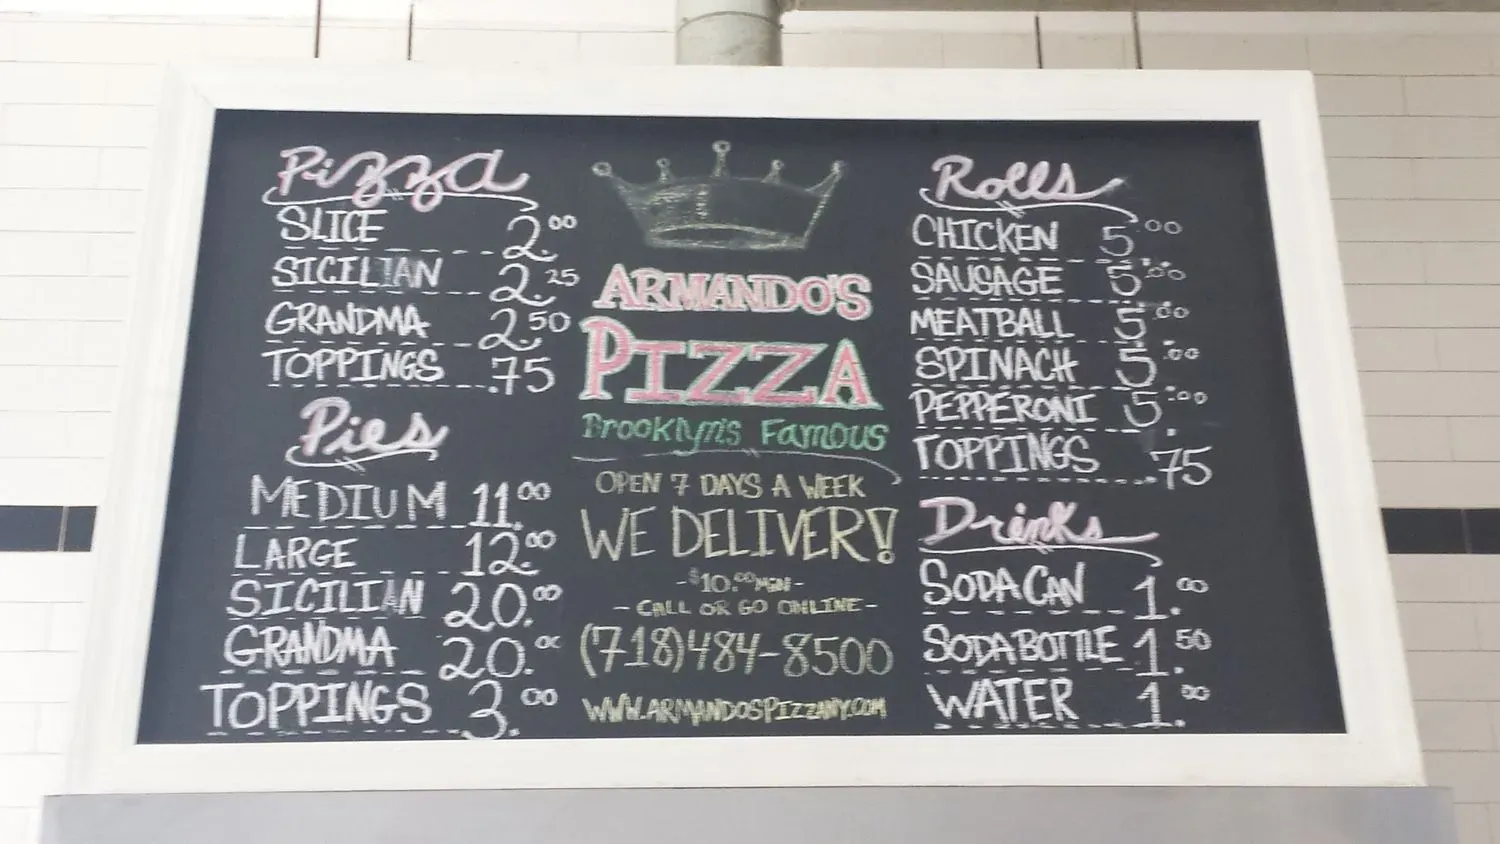 Pizza
SLICE 2.00
SICILIAN 2.25
GRANDMA 2.50
TOPPINGS .75
Pies
MEDIUM 11.00
LARGE 12.00
SICILIAN 20.00
GRANDMA 20.00
TOPPINGS 3.00
ARMANDO'S
PIZZA
Brooklyn's Famous
OPEN 7 DAYS A WEEK
WE DELIVER!
-$10.00 MIN-
-CALL OR GO ONLINE-
(718)484-8500
WWW.ARMANDOSPIZZANY.COM
Rolls
CHICKEN 5.00
SAUSAGE 5.00
MEATBALL 5.00
SPINACH 5.00
PEPPERONI 5.00
TOPPINGS .75
Drinks
SODA CAN 1.00
SODA BOTTLE 1.50
WATER 1.00